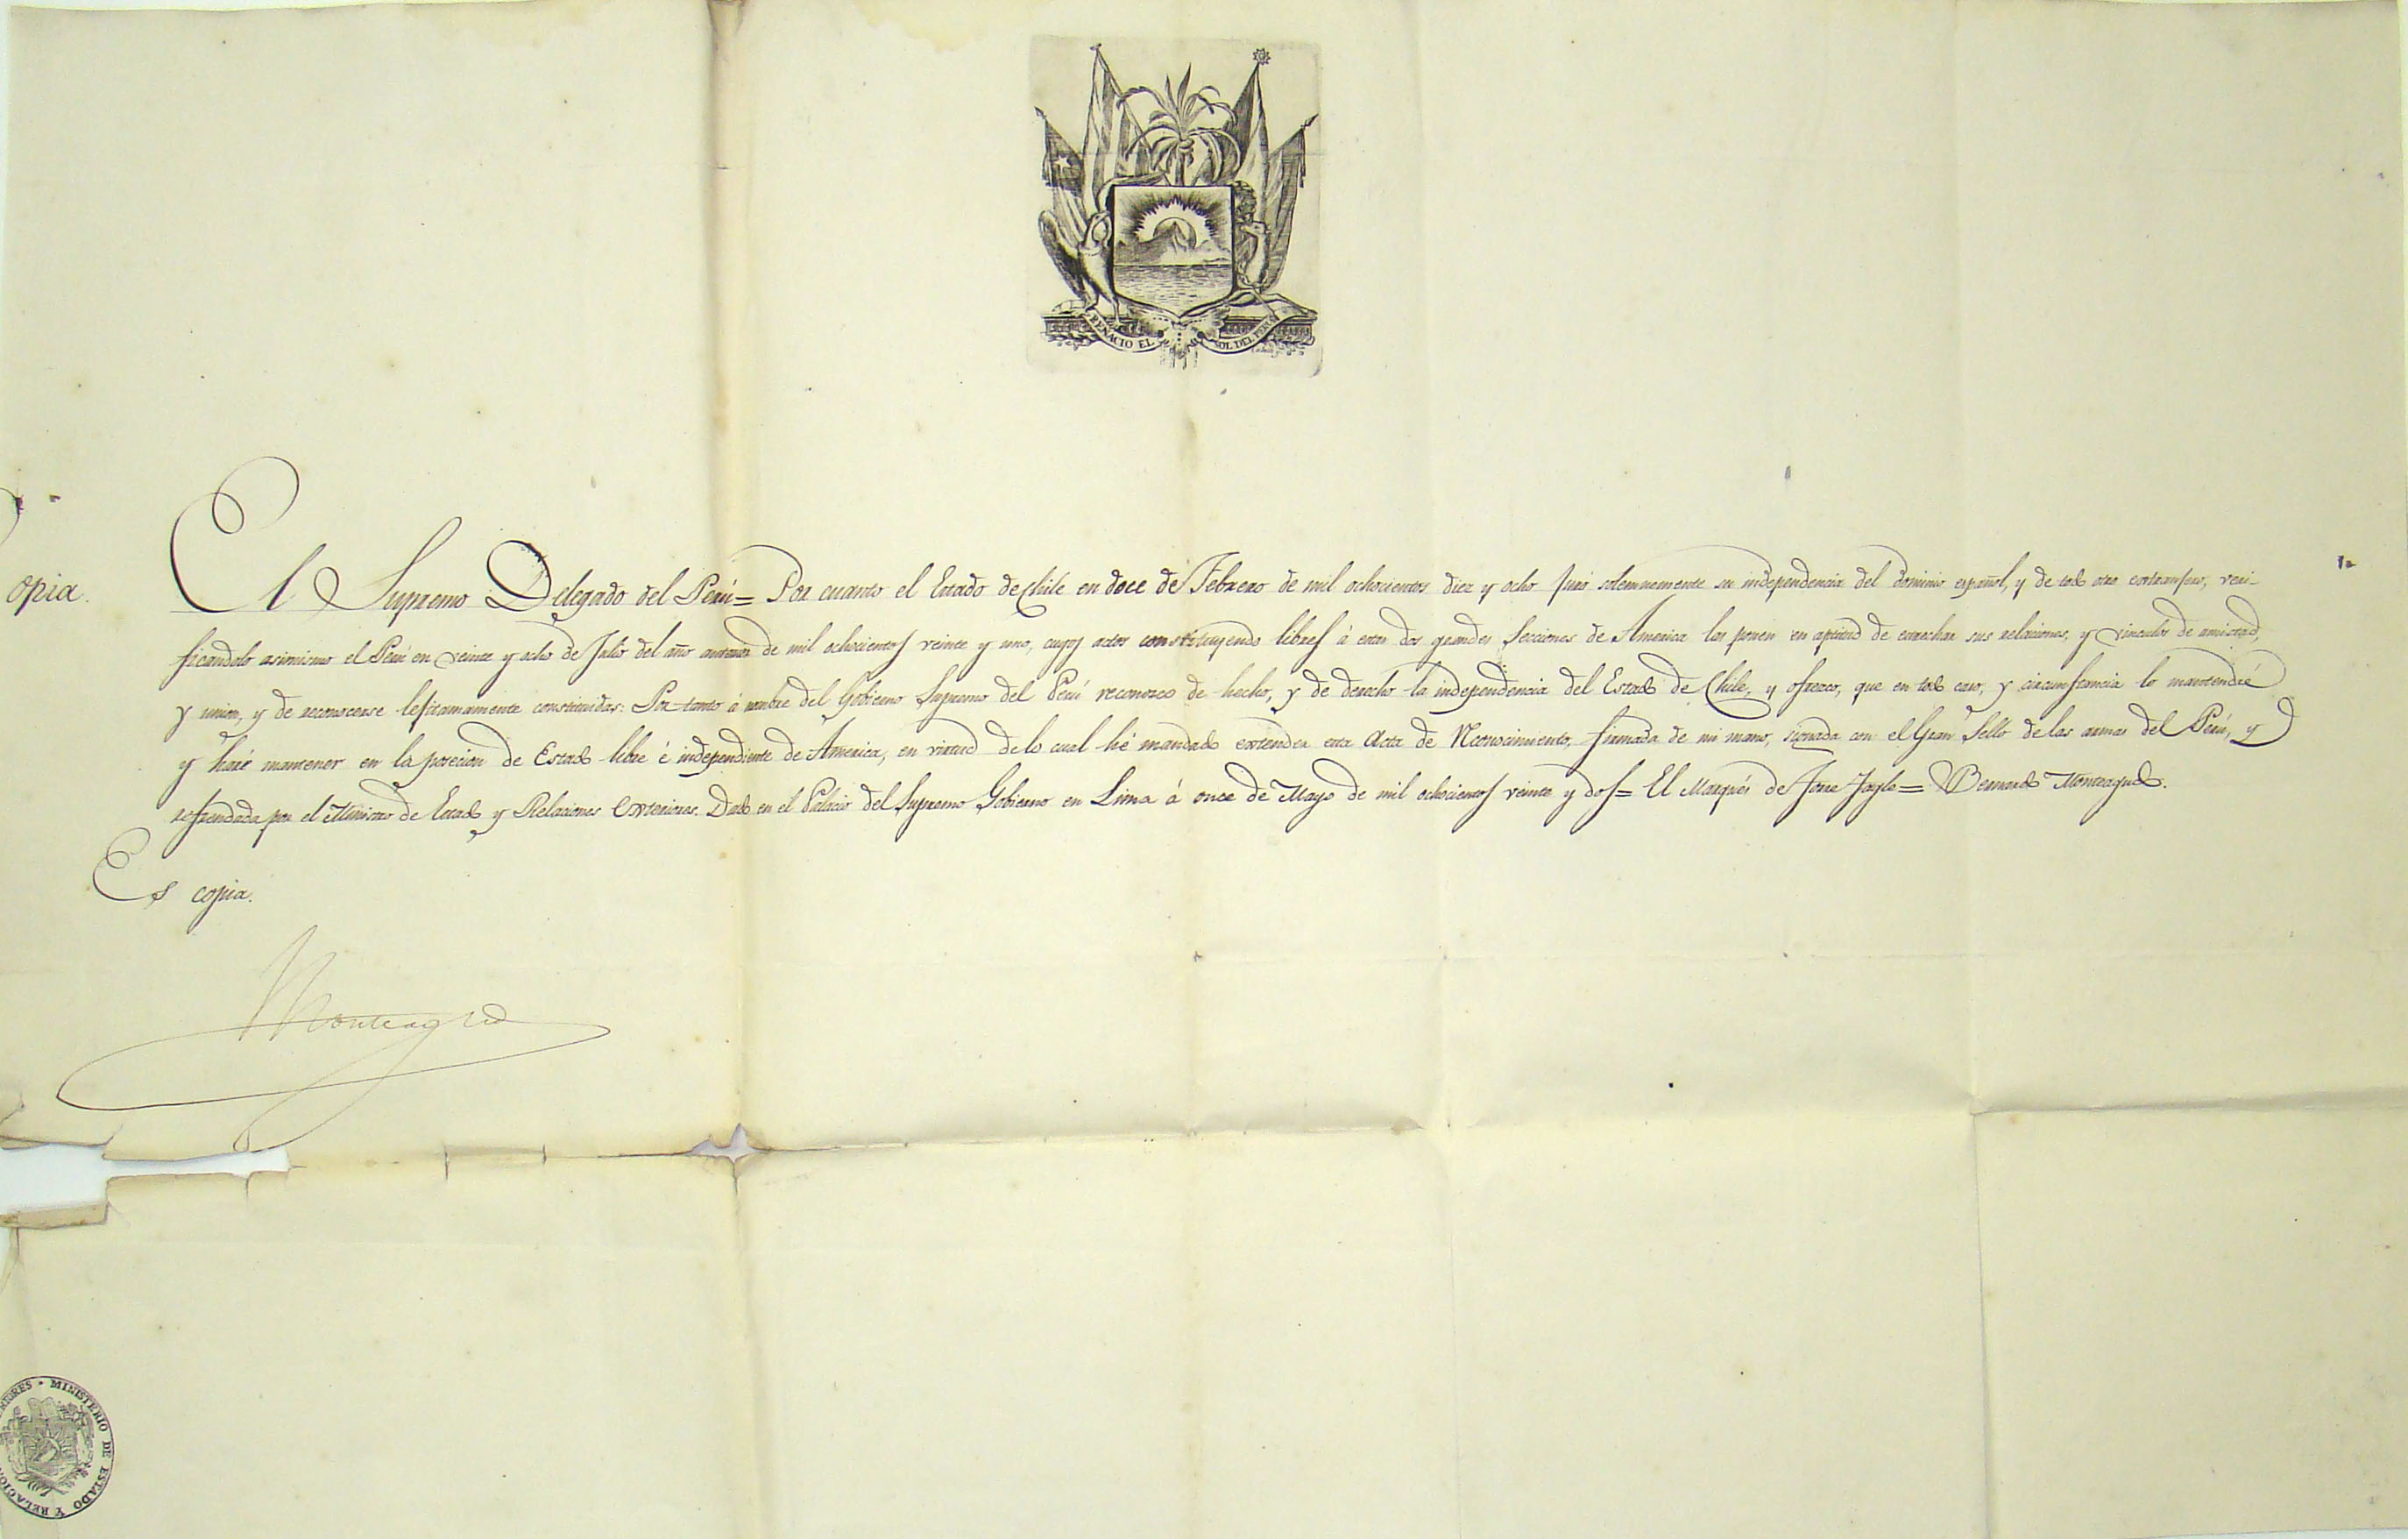 RENACIO EL SOL DEL PERU
opia.
El Supremo Delegado del Perú= Por cuanto el Estado de Chile en doce de Febrero de mil ochocientos diez y ocho juró solemnemente su independencia del dominio español, y de todo otro extranjero, veri-
ficandolo asimismo el Perú en veinte y ocho de Julio del año de mil ochocientos veinte y uno, cuyos actos constituyendo libres à estas dos grandes Secciones de America las ponen en aptitud de estrechar sus relaciones, y vinculos de amistad,
y union, y de reconocerse lejitamamente constituidas: Por tanto á nombre del Gobierno Supremo del Perú reconozco de hecho, y de derecho la independencia del Estado de Chile, y ofrezco, que en todo caso, y circunstancia lo mantendré
y haré mantener en la posecion de Estado libre é independiente de America, en virtud de lo cual hé mandado extender esta Acta de Reconocimiento, firmada de mi mano, signada con el Gran Sello de las armas del Perú, y
refrendada por el Ministro de Estado y Relaciones Exteriores. Dado en el Palacio del Supremo Gobierno en Lima à once de Mayo de mil ochocientos veinte y dos= El Marqués de Torre Tagle= Bernardo Monteagudo.
Es copia.
Monteagudo
MINISTERIO DE ESTADO Y RELACION